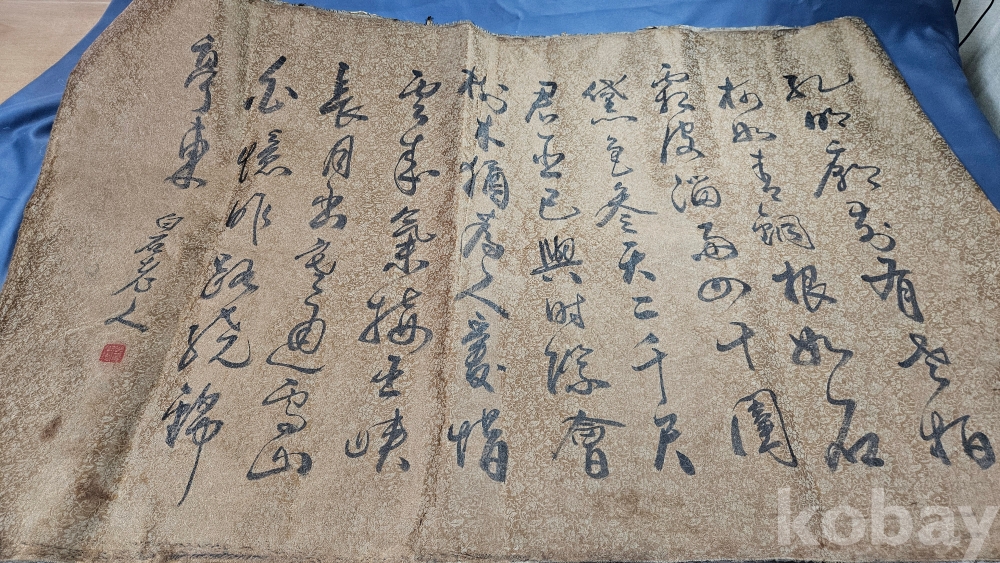 孔明廟前有老柏
柯如青銅根如石
霜皮溜雨四十圍
黛色參天二千尺
君臣已與時際會
樹木猶為人愛惜
雲來氣接巫峽
長月出寒通雪山
白憶昨路繞錦
亭東
白 老人
kobay